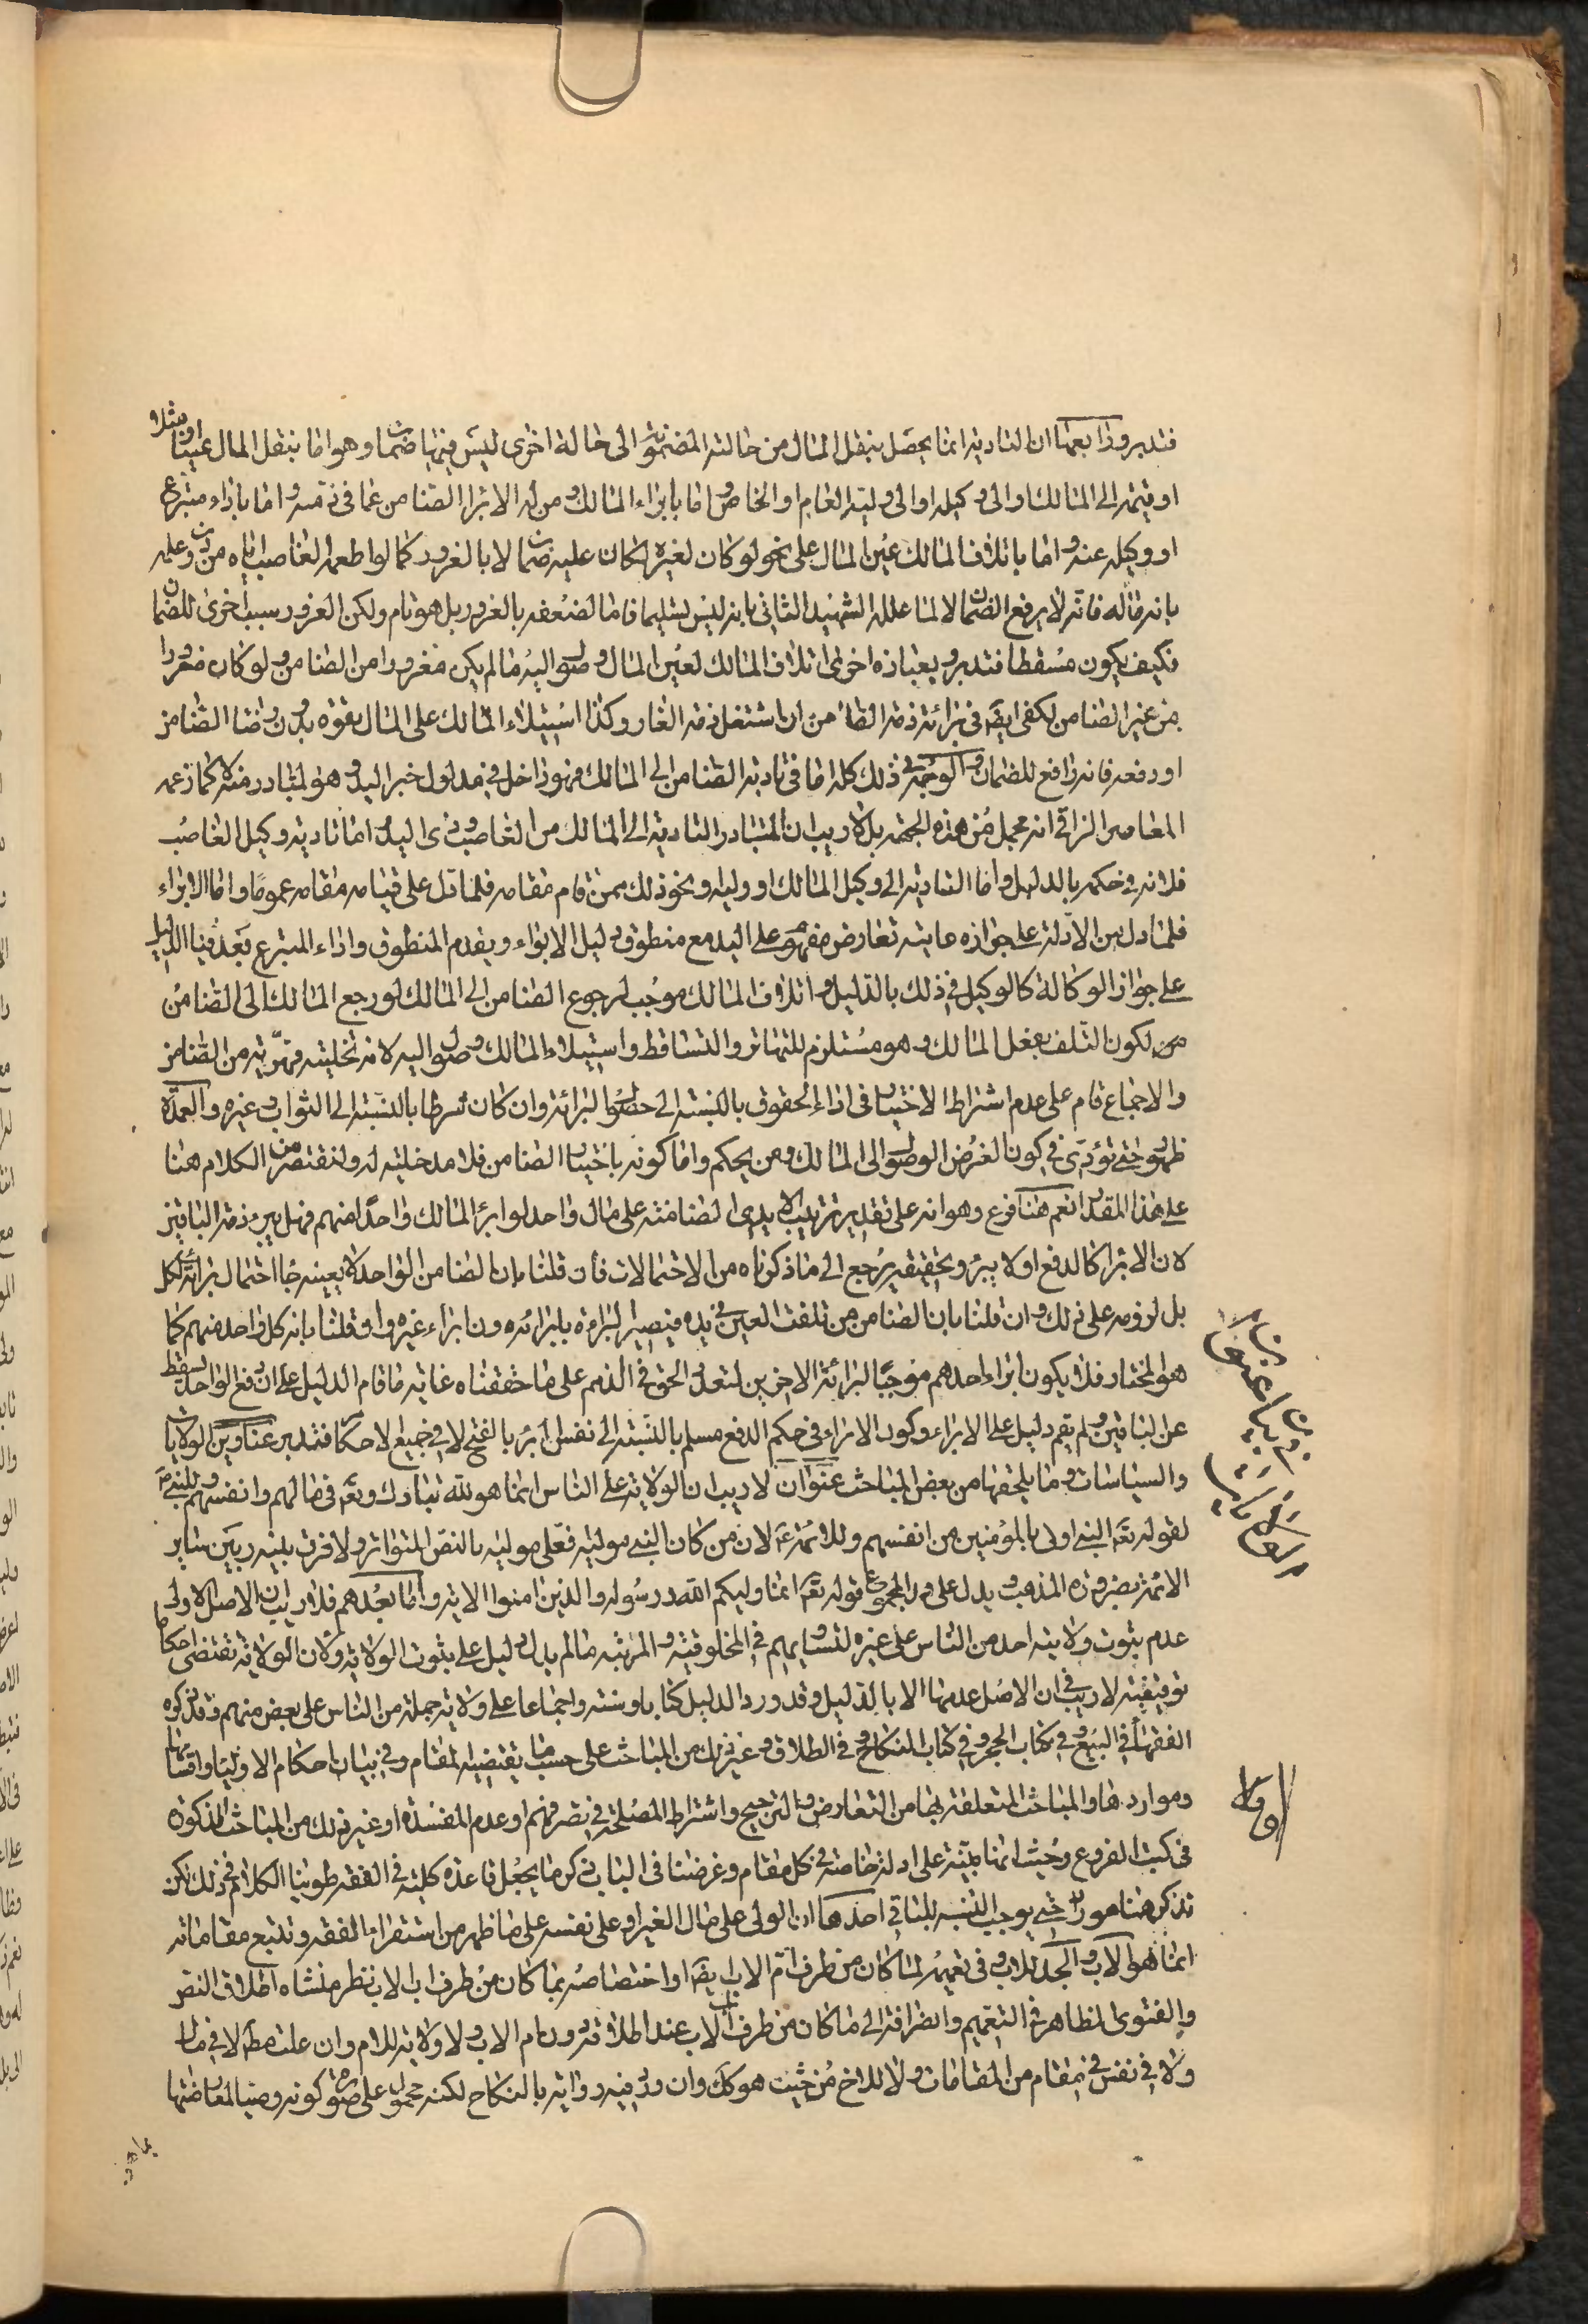 فتدبر ورابعها ان التادية انما يحصل بنقل المال من حالته المضمونة الى حالة اخرى ليس فيها ضمان وهو اما بنقل المال عينا او مثلا
او قيمة الى المالك او الى وكيله او الى وليه العام او الخاص واما بابراء المالك ومن له الابراء الضامن عما في ذمته واما باداء متبرع
او وكيله عنه واما باتلاف المالك عين المال على نحو لو كان لغيره لكان عليه ضمان لا بالغرور كما لو اطعمه الغاصب اياه من دون علمه
بانه ماله فانه لا يرفع الضمان لا لما علله الشهيد الثاني بانه ليس تسليما تاما لضعفه بالغرور بل هو تام ولكن الغرور سبب اخرى للضمان
فكيف يكون مسقطا فتدبر وبعبارة اخرى اتلاف المالك لعين المال وصوله اليه ما لم يكن مغرورا من الضامن ولو كان مغرورا
من غير الضامن لكفى ايضا في برائة ذمة الضامن ان اشتغل ذمة الغار وكذا استيلاء المالك على المال بقوة بدون رضا الضامن
او دفعه فانه رافع للضمان والوجه في ذلك كله اما في تادية الضامن الى المالك فهو داخل في مدلول خبر اليد وهو المتبادر منه لا كما زعمه
المعاصر النراقي انه مجمل من هذه الجهة بل لا ريب ان المتبادر التادية الى المالك من الغاصب وذى اليد واما تادية وكيل الغاصب
فلانه في حكمه بالدليل واما التادية الى وكيل المالك او وليه ونحو ذلك ممن قام مقامه فلما دل على قيامه مقامه عموما واما الابراء
فلما دل من الادلة على جوازه غايته تعارض مفهوم على اليد مع منطوق دليل الابراء ويقدم المنطوق واداء المتبرع بعد قيام الدليل
على جواز الوكالة كالوكيل في ذلك بالدليل واتلاف المالك موجب لرجوع الضامن الى المالك لو رجع المالك الى الضامن
من لكون التلف بفعل المالك وهو مستلزم للتهاتر والتساقط واستيلاء المالك وصول اليه لانه تخليته قهرية من الضامن
والاجماع قام على عدم اشتراط الاختيار في اداء الحقوق بالنسبة الى حصول البرائة وان كان شرطا بالنسبة الى الثواب وغيره والعمدة
ظهور حتى تؤدى في كون الغرض الوصول الى المالك ومن بحكمه واما كونه باختيار الضامن فلا مدخلية له ولنقتصر من الكلام هنا
على هذا المقدار نعم هنا فرع وهو انه على تقدير ترتيب الايدي الضامنة على مال واحد لو ابرء المالك واحدا منهم فهل يبرء ذمة الباقين
لان الابراء كالدفع او لا يبرء وتحقيقه يرجع الى ما ذكرناه من الاحتمالات فان قلنا بان الضامن الواحد لا بعينه جاء احتمال برائة الكل
بل لزومه على ذلك وان قلنا بان الضامن من تلفت العين في يده فيصير البراءة بابرائه دون ابراء غيره وان قلنا بانه كل واحد منهم كما
هو المختار فلا يكون ابراء احدهم موجبا لبرائة الاخرين لتعدد الحق في الذمم على ما حققناه غاية ما قام الدليل على ان دفع الواحد يسقط
عن الباقين ولم يقم دليل على الابراء وكون الابراء في حكم الدفع مسلم بالنسبة الى نفس المبرء بالفتح لا في جميع الاحكام فتدبر عناوين الولايات
والسياسات وما يلحقها من بعض المباحث عنوان لا ريب ان الولاية على الناس انما هو لله تبارك وتعالى في مالهم وانفسهم وللنبي ص
لقوله تعالى النبي اولى بالمؤمنين من انفسهم وللائمة ع لان من كان النبي موليه فعلي موليه بالنص المتواتر ولا فرق بينه وبين ساير
الائمة بضرورة المذهب ويدل على المجموع قوله تعالى انما وليكم الله ورسوله والذين امنوا الاية واما بعدهم فلا ريب ان الاصل الاولى
عدم ثبوت ولاية احد من الناس على غيره لتساويهم في المخلوقية والمرتبة ما لم يدل دليل على ثبوت الولاية ولان الولاية تقتضى احكاما
توقيفية لا ريب في ان الاصل عدمها الا بالدليل وقد ورد الدليل كتابا وسنة واجماعا على ولاية جملة من الناس على بعض منهم وقد ذكره
الفقهاء في البيع وفي كتاب الحجر وفي كتاب النكاح وفي الطلاق وغير ذلك من المباحث على حسب ما يقتضيه المقام وفي بيان احكام الاولياء واقسامها
ومواردها والمباحث المتعلقة بها من التعارض والترجيح واشتراط المصلحة في تصرفهم او عدم المفسدة او غير ذلك من المباحث المذكورة
في كتب الفروع وحيث انها مبنية على ادلة خاصة في كل مقام وغرضنا في الباب ذكر ما يجعل قاعدة كلية في الفقه طوينا الكلام في ذلك لكن
نذكر هنا امورا حتى يوجب التنبه للباقي احدها ان الولى على مال الغير او على نفسه على ما ظهر من استقراء الفقه وتتبع مقاماته
انما هو الاب والجد للاب وفي تعميمه لما كان من طرف ام الاب ايضا او اختصاصه بما كان من طرف اب الاب نظر منشاه اطلاق النص
والفتوى الظاهر في التعميم وانصرافه الى ما كان من طرف اب الاب عند اطلاقه دون ام الاب ولا ولاية للام وان علت مط لا في مال
ولا في نفس في مقام من المقامات ولا للاخ من حيث هو كك وان ورد فيه رواية بالنكاح لكنه محمول على صورة كونه وصيا لمعارضتها